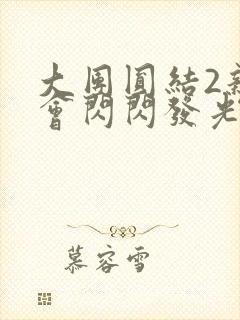 大團圓結2
會閃閃發光
慕容雪